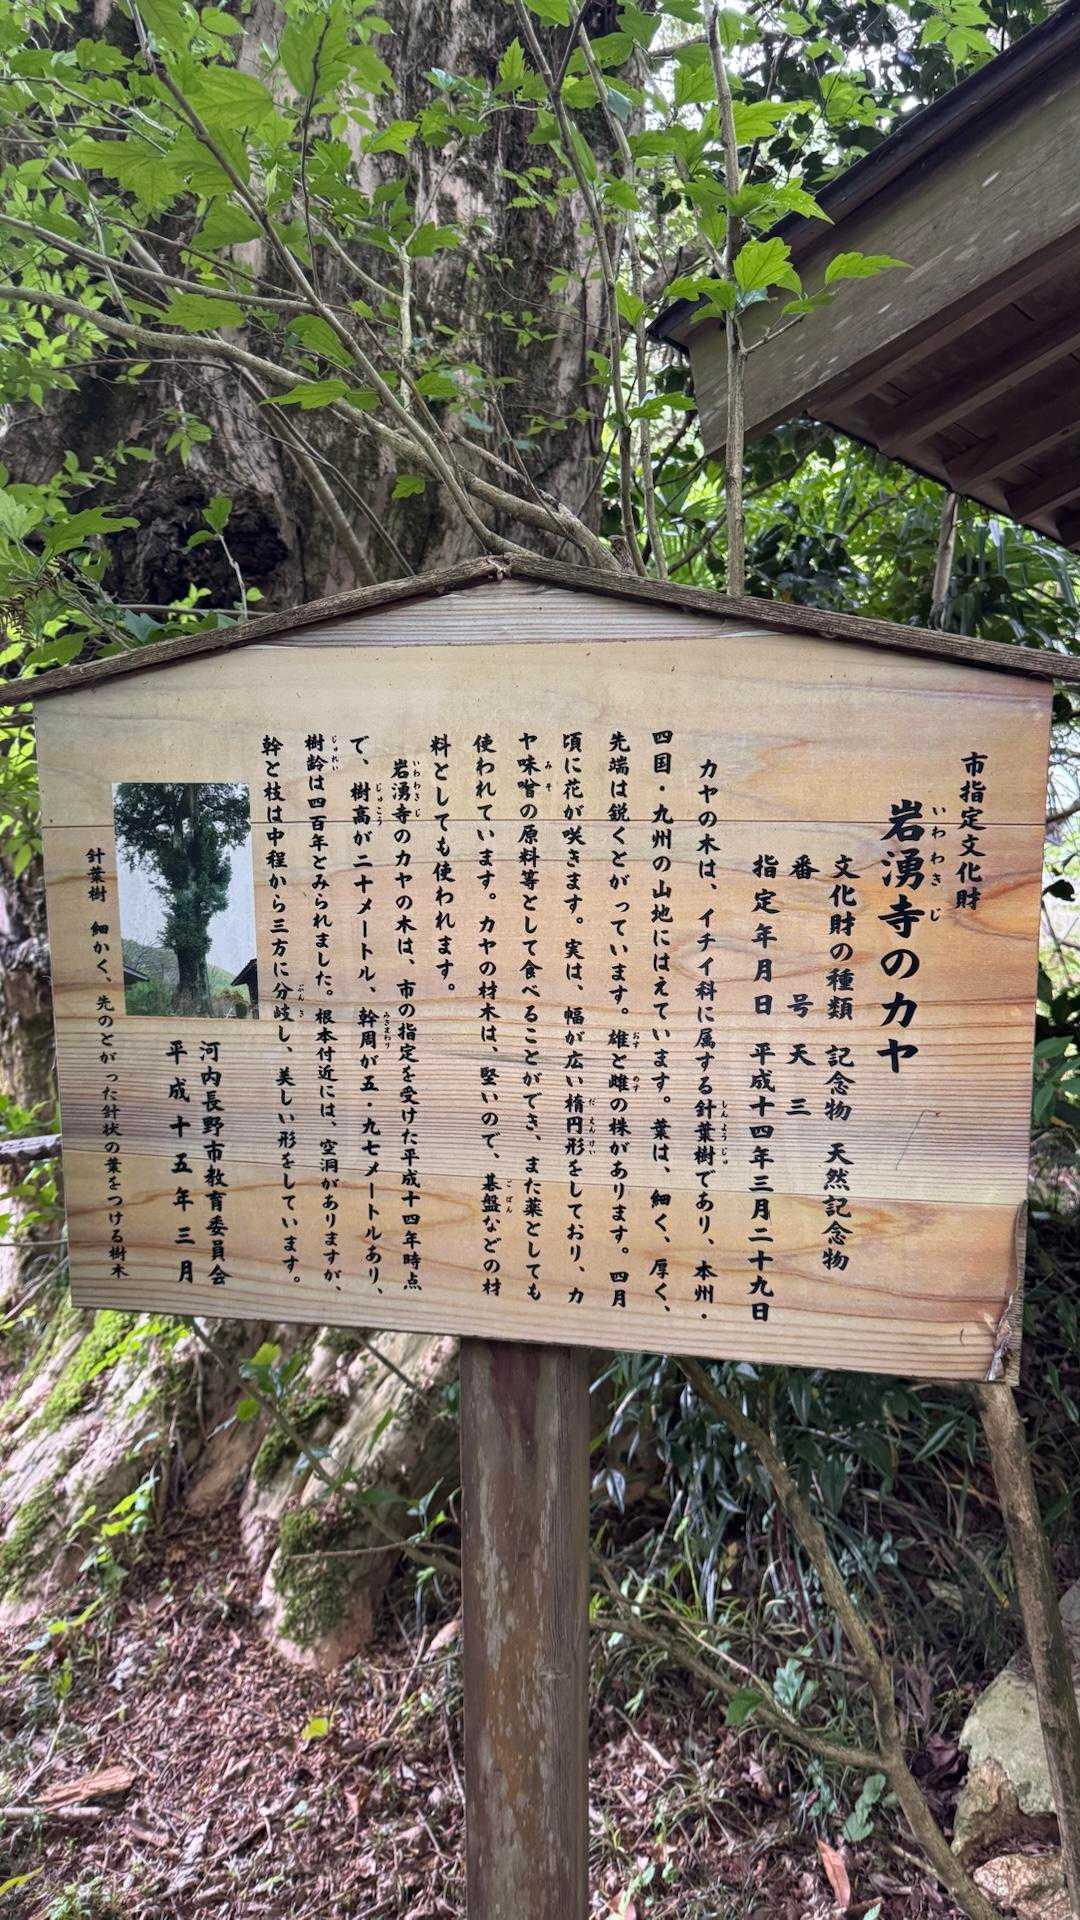 市指定文化財
岩湧寺のカヤ
いわわきじ
文化財の種類 記念物 天然記念物
番号 天三
指定年月日 平成十四年三月二十九日
カヤの木は、イチイ科に属する針葉樹であり、本州・
しんようじゅ
四国・九州の山地にはえています。葉は、細く、厚く、
先端は鋭くとがっています。雄と雌の株があります。四月
おす めす
頃に花が咲きます。実は、幅が広い楕円形をしており、カ
だえんけい
ヤ味噌の原料等として食べることができ、また薬としても
みそ
使われています。カヤの材木は、堅いので、碁盤などの材
ごばん
料としても使われます。
岩湧寺のカヤの木は、市の指定を受けた平成十四年時点
いわわきじ
で、樹高が二十メートル、幹周が五・九七メートルあり、
じゅこう みきまわり
樹齢は四百年とみられました。根本付近には、空洞がありますが、
じゅれい
幹と枝は中程から三方に分岐し、美しい形をしています。
ぶんき
河内長野市教育委員会
平成十五年三月
針葉樹 細かく、先のとがった針状の葉をつける樹木